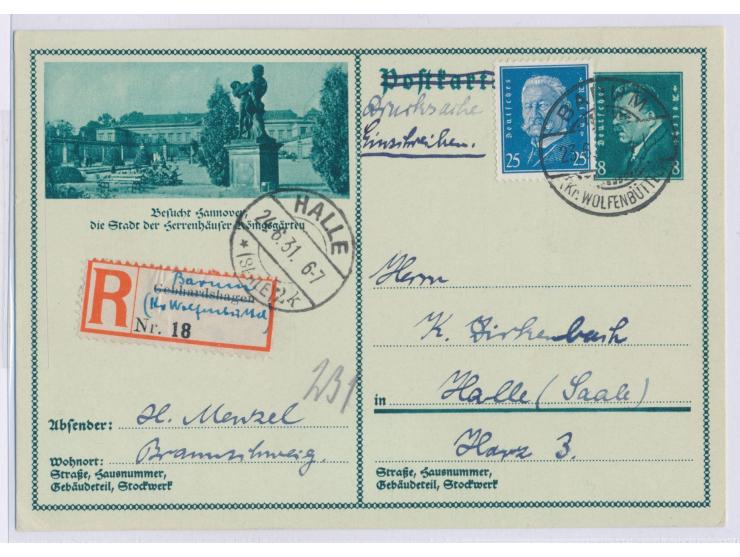 Postkarte
Drucksache
Einschreiben.
Deutsches Reich
25 25
Deutsches Reich
8 8
BARUM
(Kr. WOLFENBÜTTEL)
Besucht Hannover,
die Stadt der Herrenhäuser Königsgärten
HALLE
24.6.31. 6-7
* (SAALE) 2 k
R
Barum
Gebhardshagen
(Kr Wolfenbüttel)
Nr. 18
Herrn
K. Birkenbach
in Halle (Saale)
Harz 3.
Straße, Hausnummer,
Gebäudeteil, Stockwerk
231
Absender: H. Menzel
Braunschweig.
Wohnort:
Straße, Hausnummer,
Gebäudeteil, Stockwerk